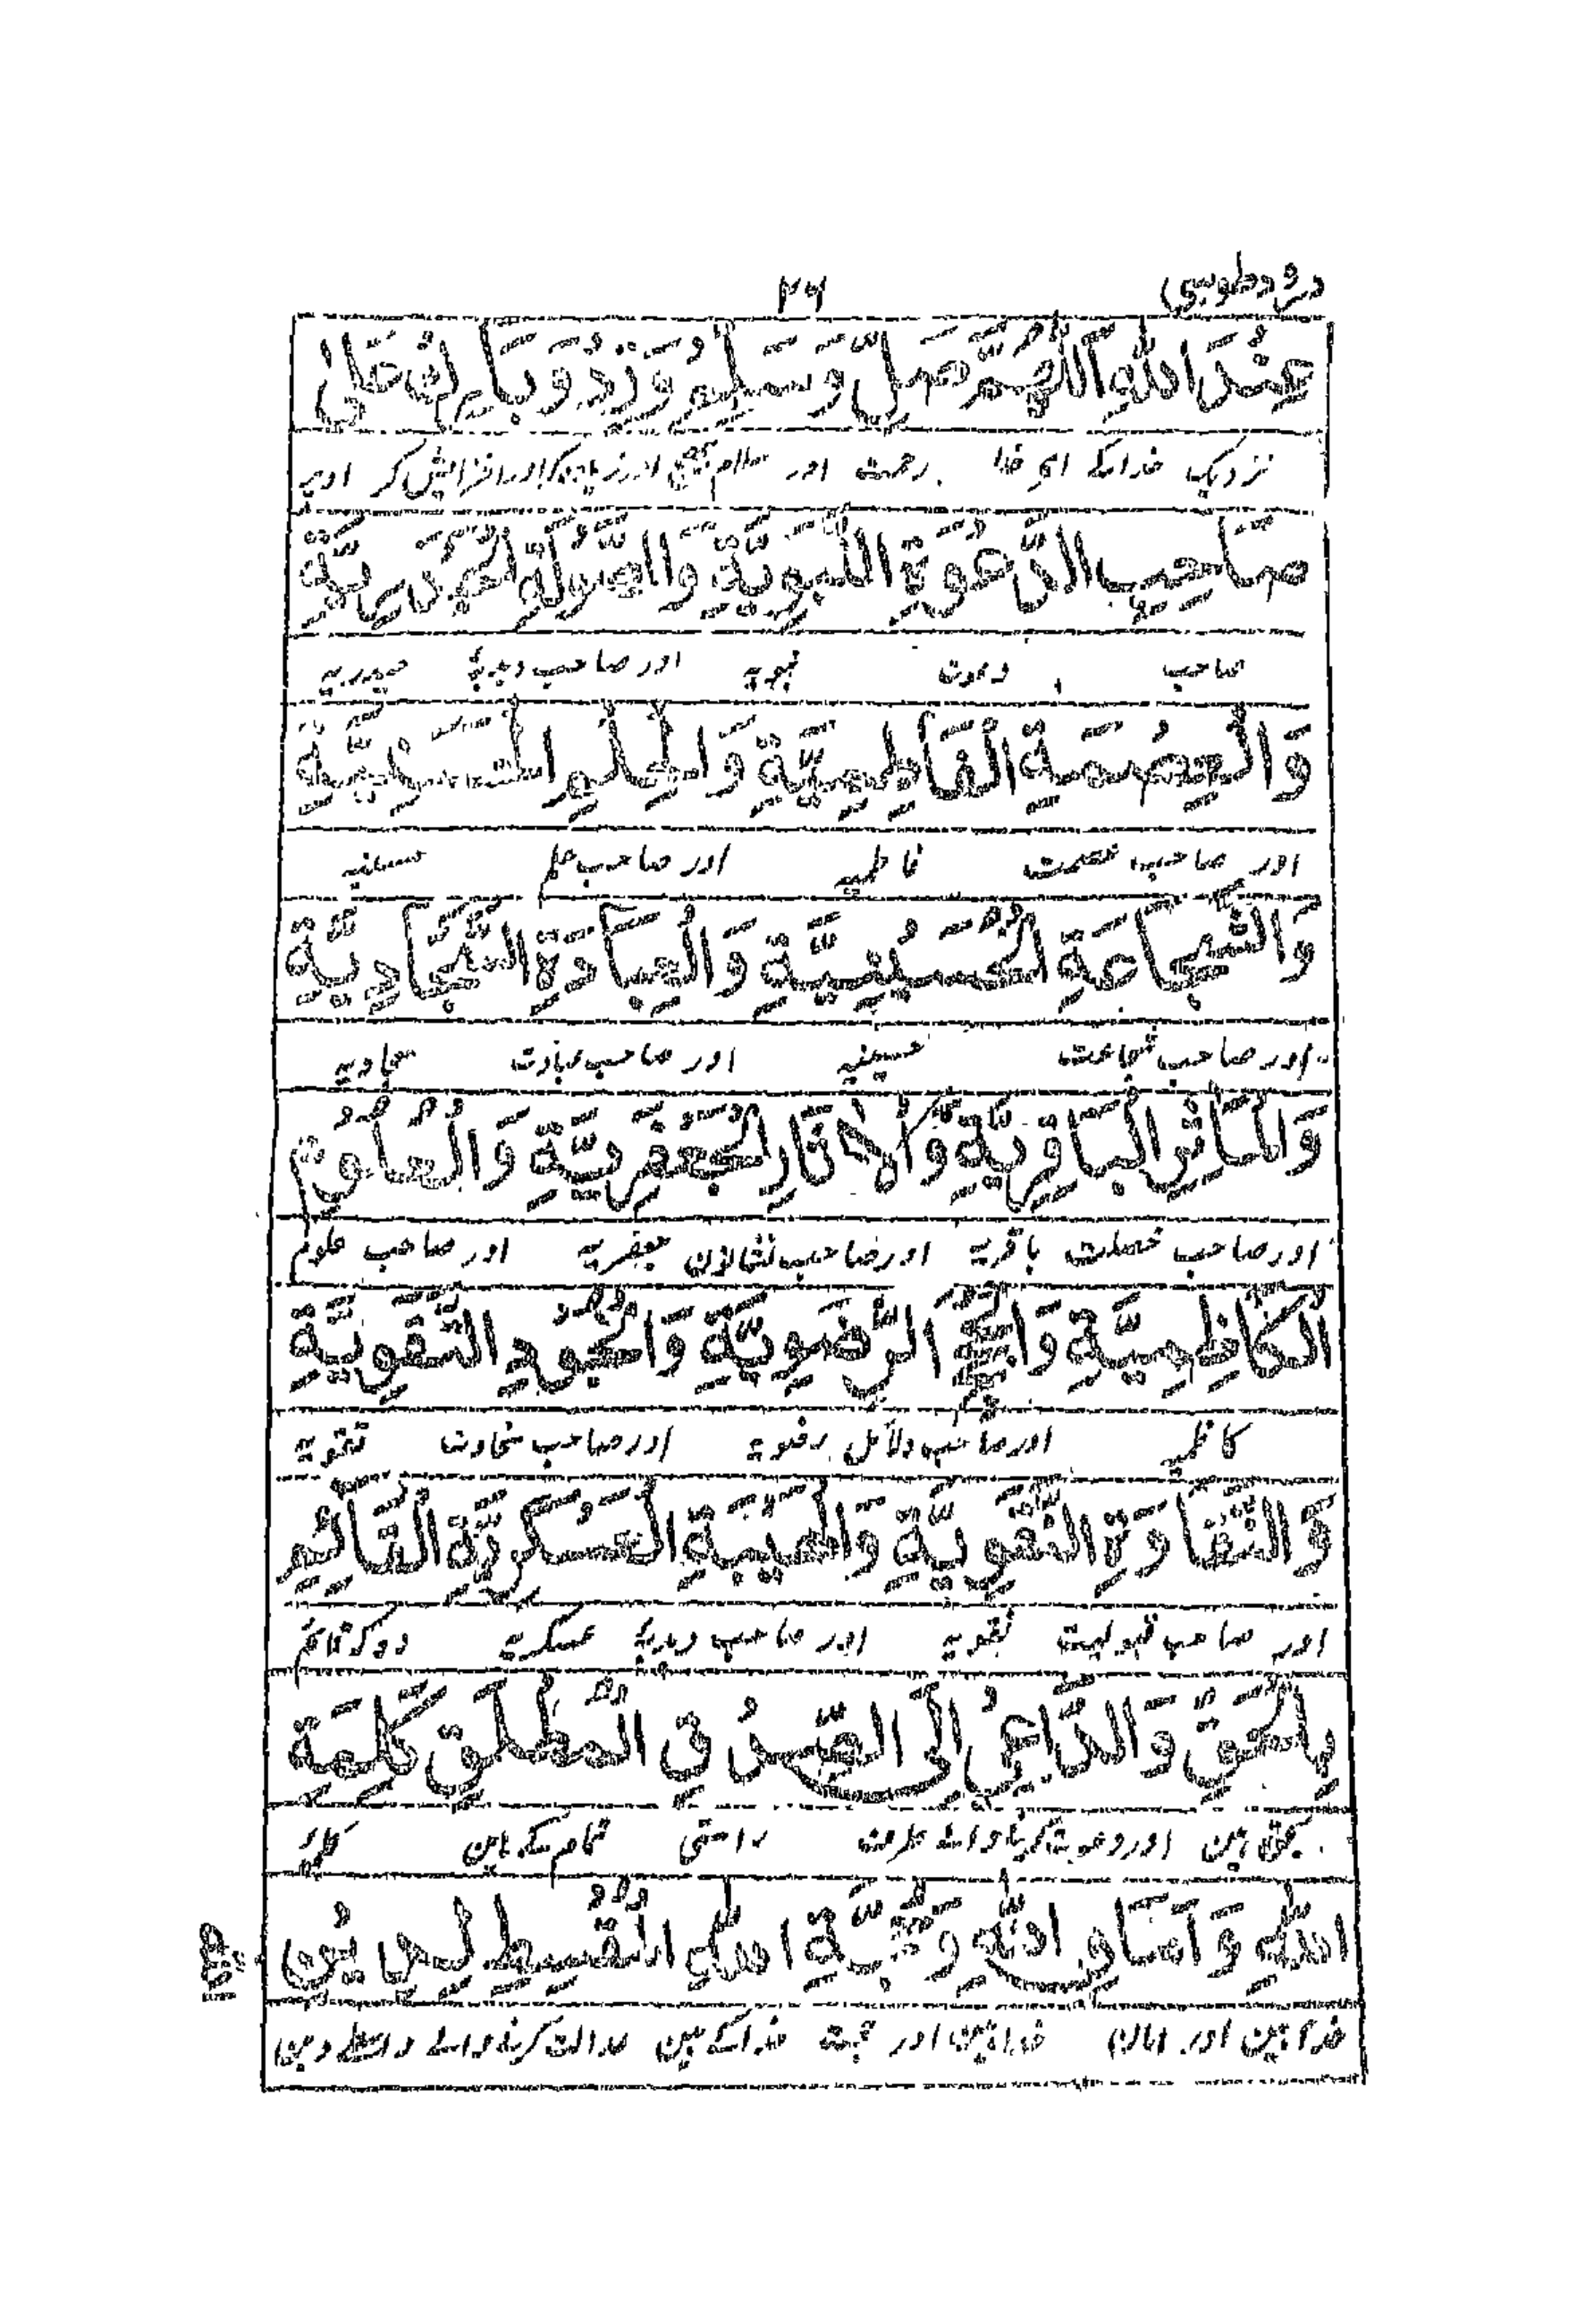 درود طوسی ۳۶
عِنْدَ اللّٰهِ اَللّٰهُمَّ صَلِّ وَسَلِّمْ وَزِدْ وَبَارِكْ عَلٰى
نزدیک خدا کے ای خدا رحمت اور سلام بھیج اور زیادہ کر اور افزایش کر اوپر
صَاحِبِ الدَّعْوَةِ النَّبَوِيَّةِ وَالصَّوْلَةِ الْحَيْدَرِيَّةِ
صاحب دعوت نبویہ اور صاحب دبدبۂ حیدریہ
وَالْعِصْمَةِ الْفَاطِمِيَّةِ وَالْحِلْمِ الْحَسَنِيَّةِ
اور صاحب عصمت فاطمیہ اور صاحب حلم حسنیہ
وَالشَّجَاعَةِ الْحُسَيْنِيَّةِ وَالْعِبَادَةِ السَّجَّادِيَّةِ
اور صاحب شجاعت حسینیہ اور صاحب عبادت سجادیہ
وَالْمَآثِرِ الْبَاقِرِيَّةِ وَالْاٰثَارِ الْجَعْفَرِيَّةِ وَالْعُلُوْمِ
اور صاحب خصلت باقریہ اور صاحب نشانون جعفریہ اور صاحب علوم
الْكَاظِمِيَّةِ وَالْحُجَجِ الرَّضَوِيَّةِ وَالْجُوْدِ التَّقَوِيَّةِ
کاظمیہ اور صاحب دلائل رضویہ اور صاحب سخاوت تقویہ
وَالنَّقَاوَةِ النَّقَوِيَّةِ وَالْهَيْبَةِ الْعَسْكَرِيَّةِ الْقَائِمِ
اور صاحب قبولیت نقویہ اور صاحب دبدبۂ عسکریہ وہ کہ قائم
بِالْحَقِّ وَالدَّاعِيْ اِلَى الصِّدْقِ الْمُطْلَقِ كَلِمَةِ
بحق ہین اور دعوت کرنیوالے طرف راستی تمام کے ہین کلمہ
اللّٰهِ وَاَمَانِ اللّٰهِ وَحُجَّةِ اللّٰهِ الْمُقْسِطِ لِدِيْنِ
خدا ہین اور امان خدا ہین اور حجت خدا کے ہین عدالت کرنے والے واسطے دین